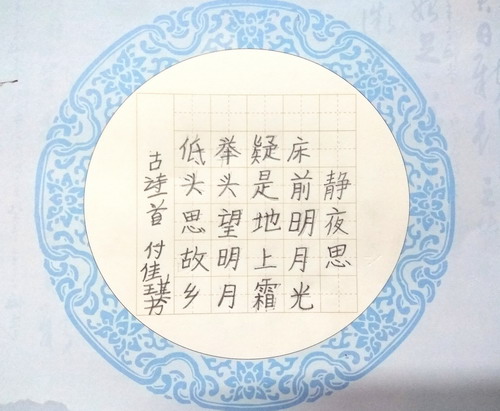 静夜思
床前明月光
疑是地上霜
举头望明月
低头思故乡
古首 付佳